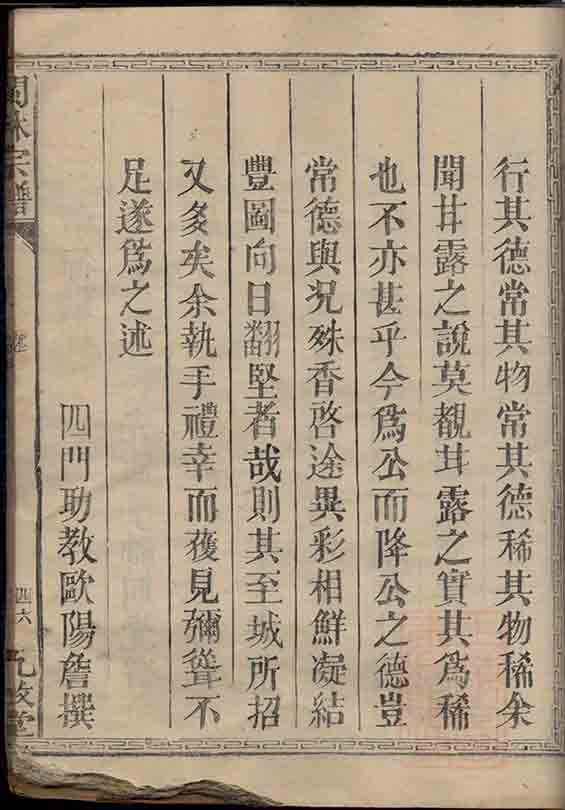 行其德常其物常其德稀其物稀余
聞甘露之說莫覩甘露之實其爲稀
也不亦甚乎今爲公而降公之德豈
常德與况殊香啓途異彩相鮮凝結
豐圖向日翻堅者哉則其至城所招
又多矣余執手禮幸而獲見彌聳不
足遂爲之述
四門助教歐陽詹撰
林宗譜
四六
九牧堂